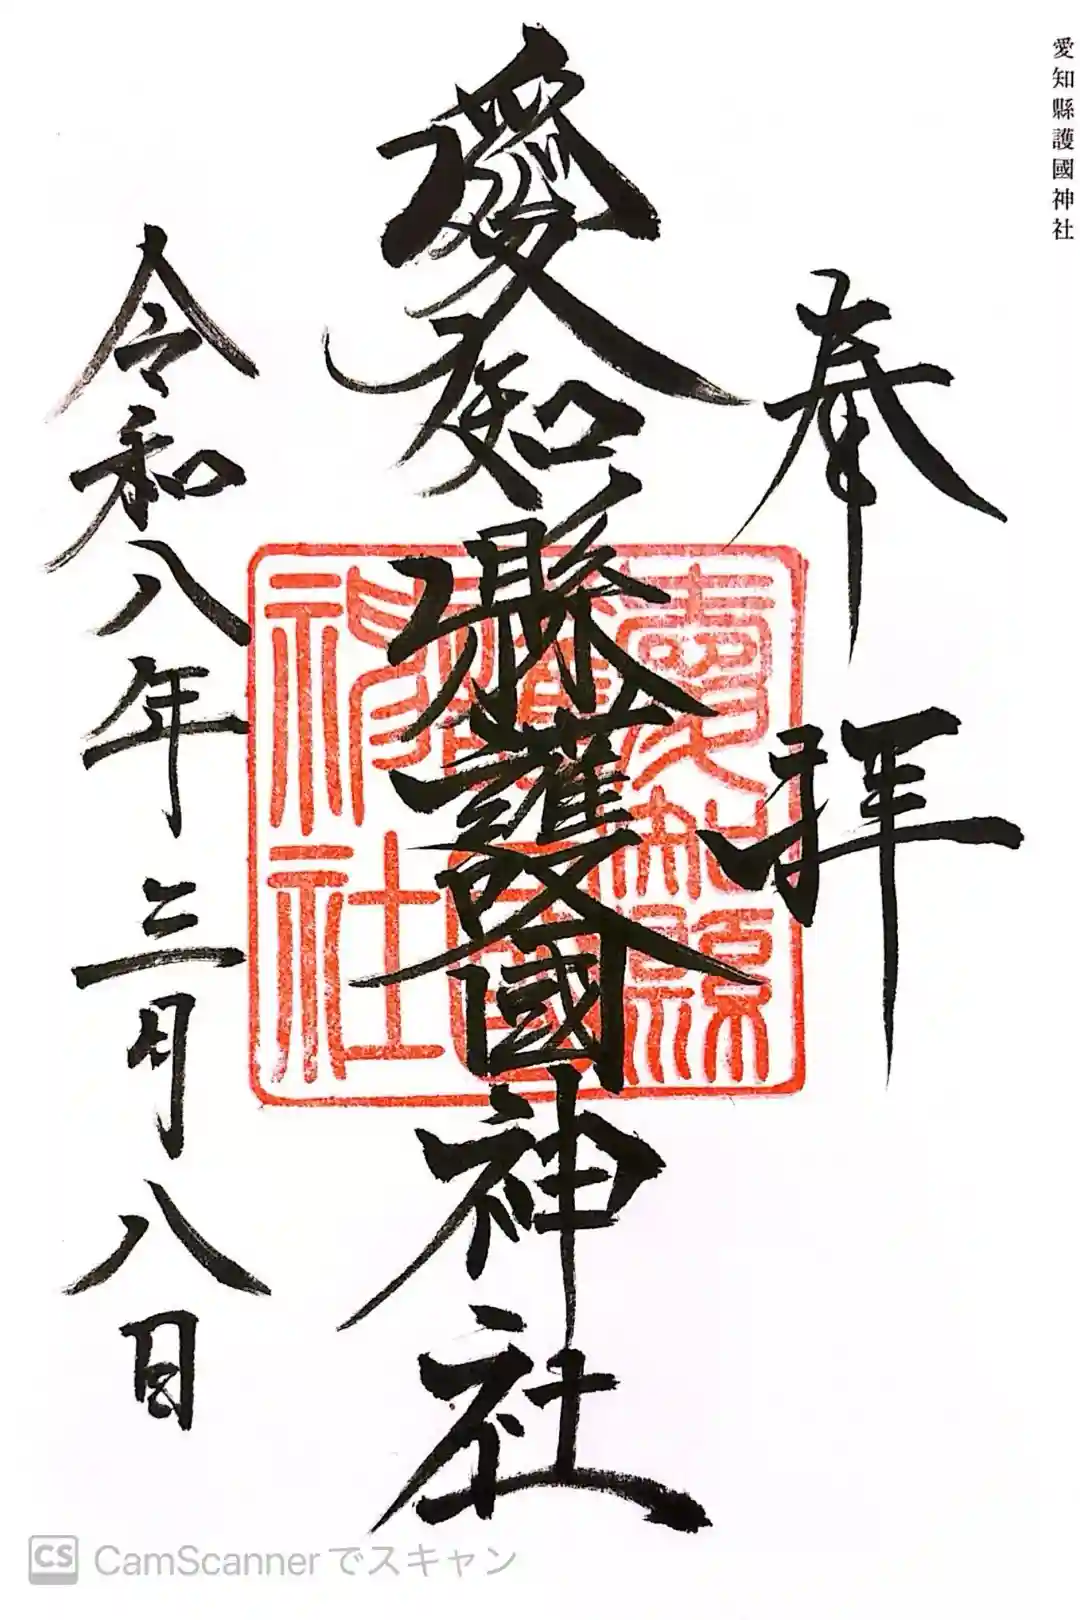 愛知縣護國神社
奉拝
愛知縣護國神社
令和八年三月八日
愛知縣
護國
神社
CS CamScannerでスキャン